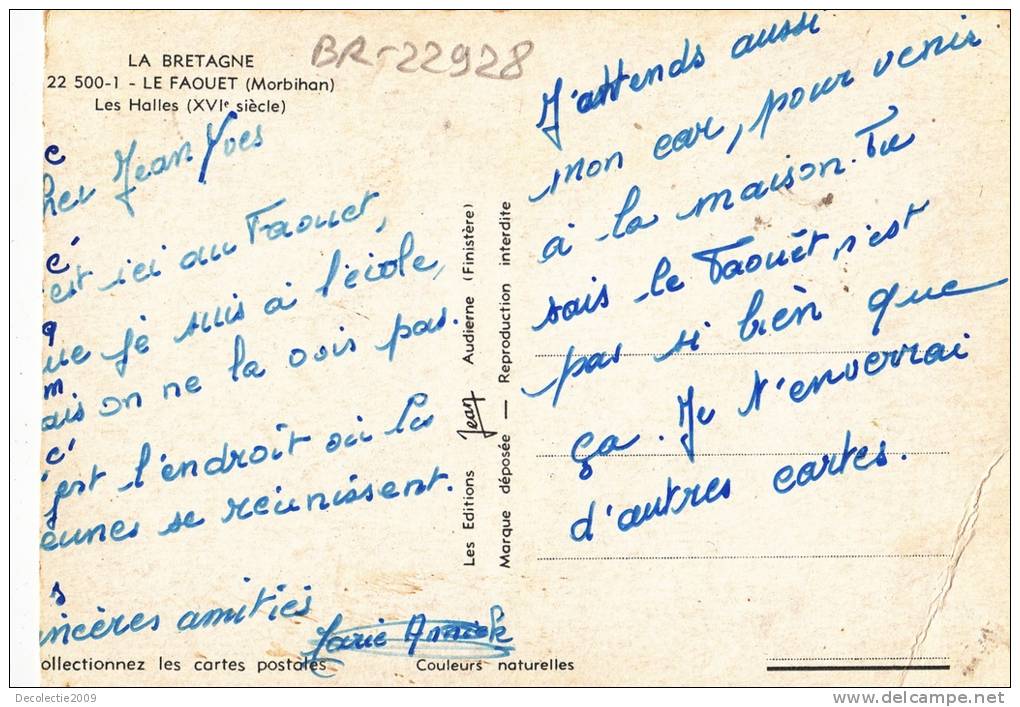 LA BRETAGNE
22 500-1 - LE FAOUET (Morbihan)
Les Halles (XVIe siècle)
BR-22928
c
her Jean Yves
c'
est ici au Faouet,
q
ue je suis à l'école,
m
ais on ne la vois pas.
c'
est l'endroit où les
jeunes se réunissent.
s
incères amitiés
Marie Annick
J'attends aussi
mon car, pour venir
à la maison. Tu
sais le Faouët, c'est
pas si bien que
ça. Je t'enverrai
d'autres cartes.
Les Editions Jean Audierne (Finistère)
Marque déposée — Reproduction interdite
ollectionnez les cartes postales
Couleurs naturelles
Decolectie2009
www.delcampe.net